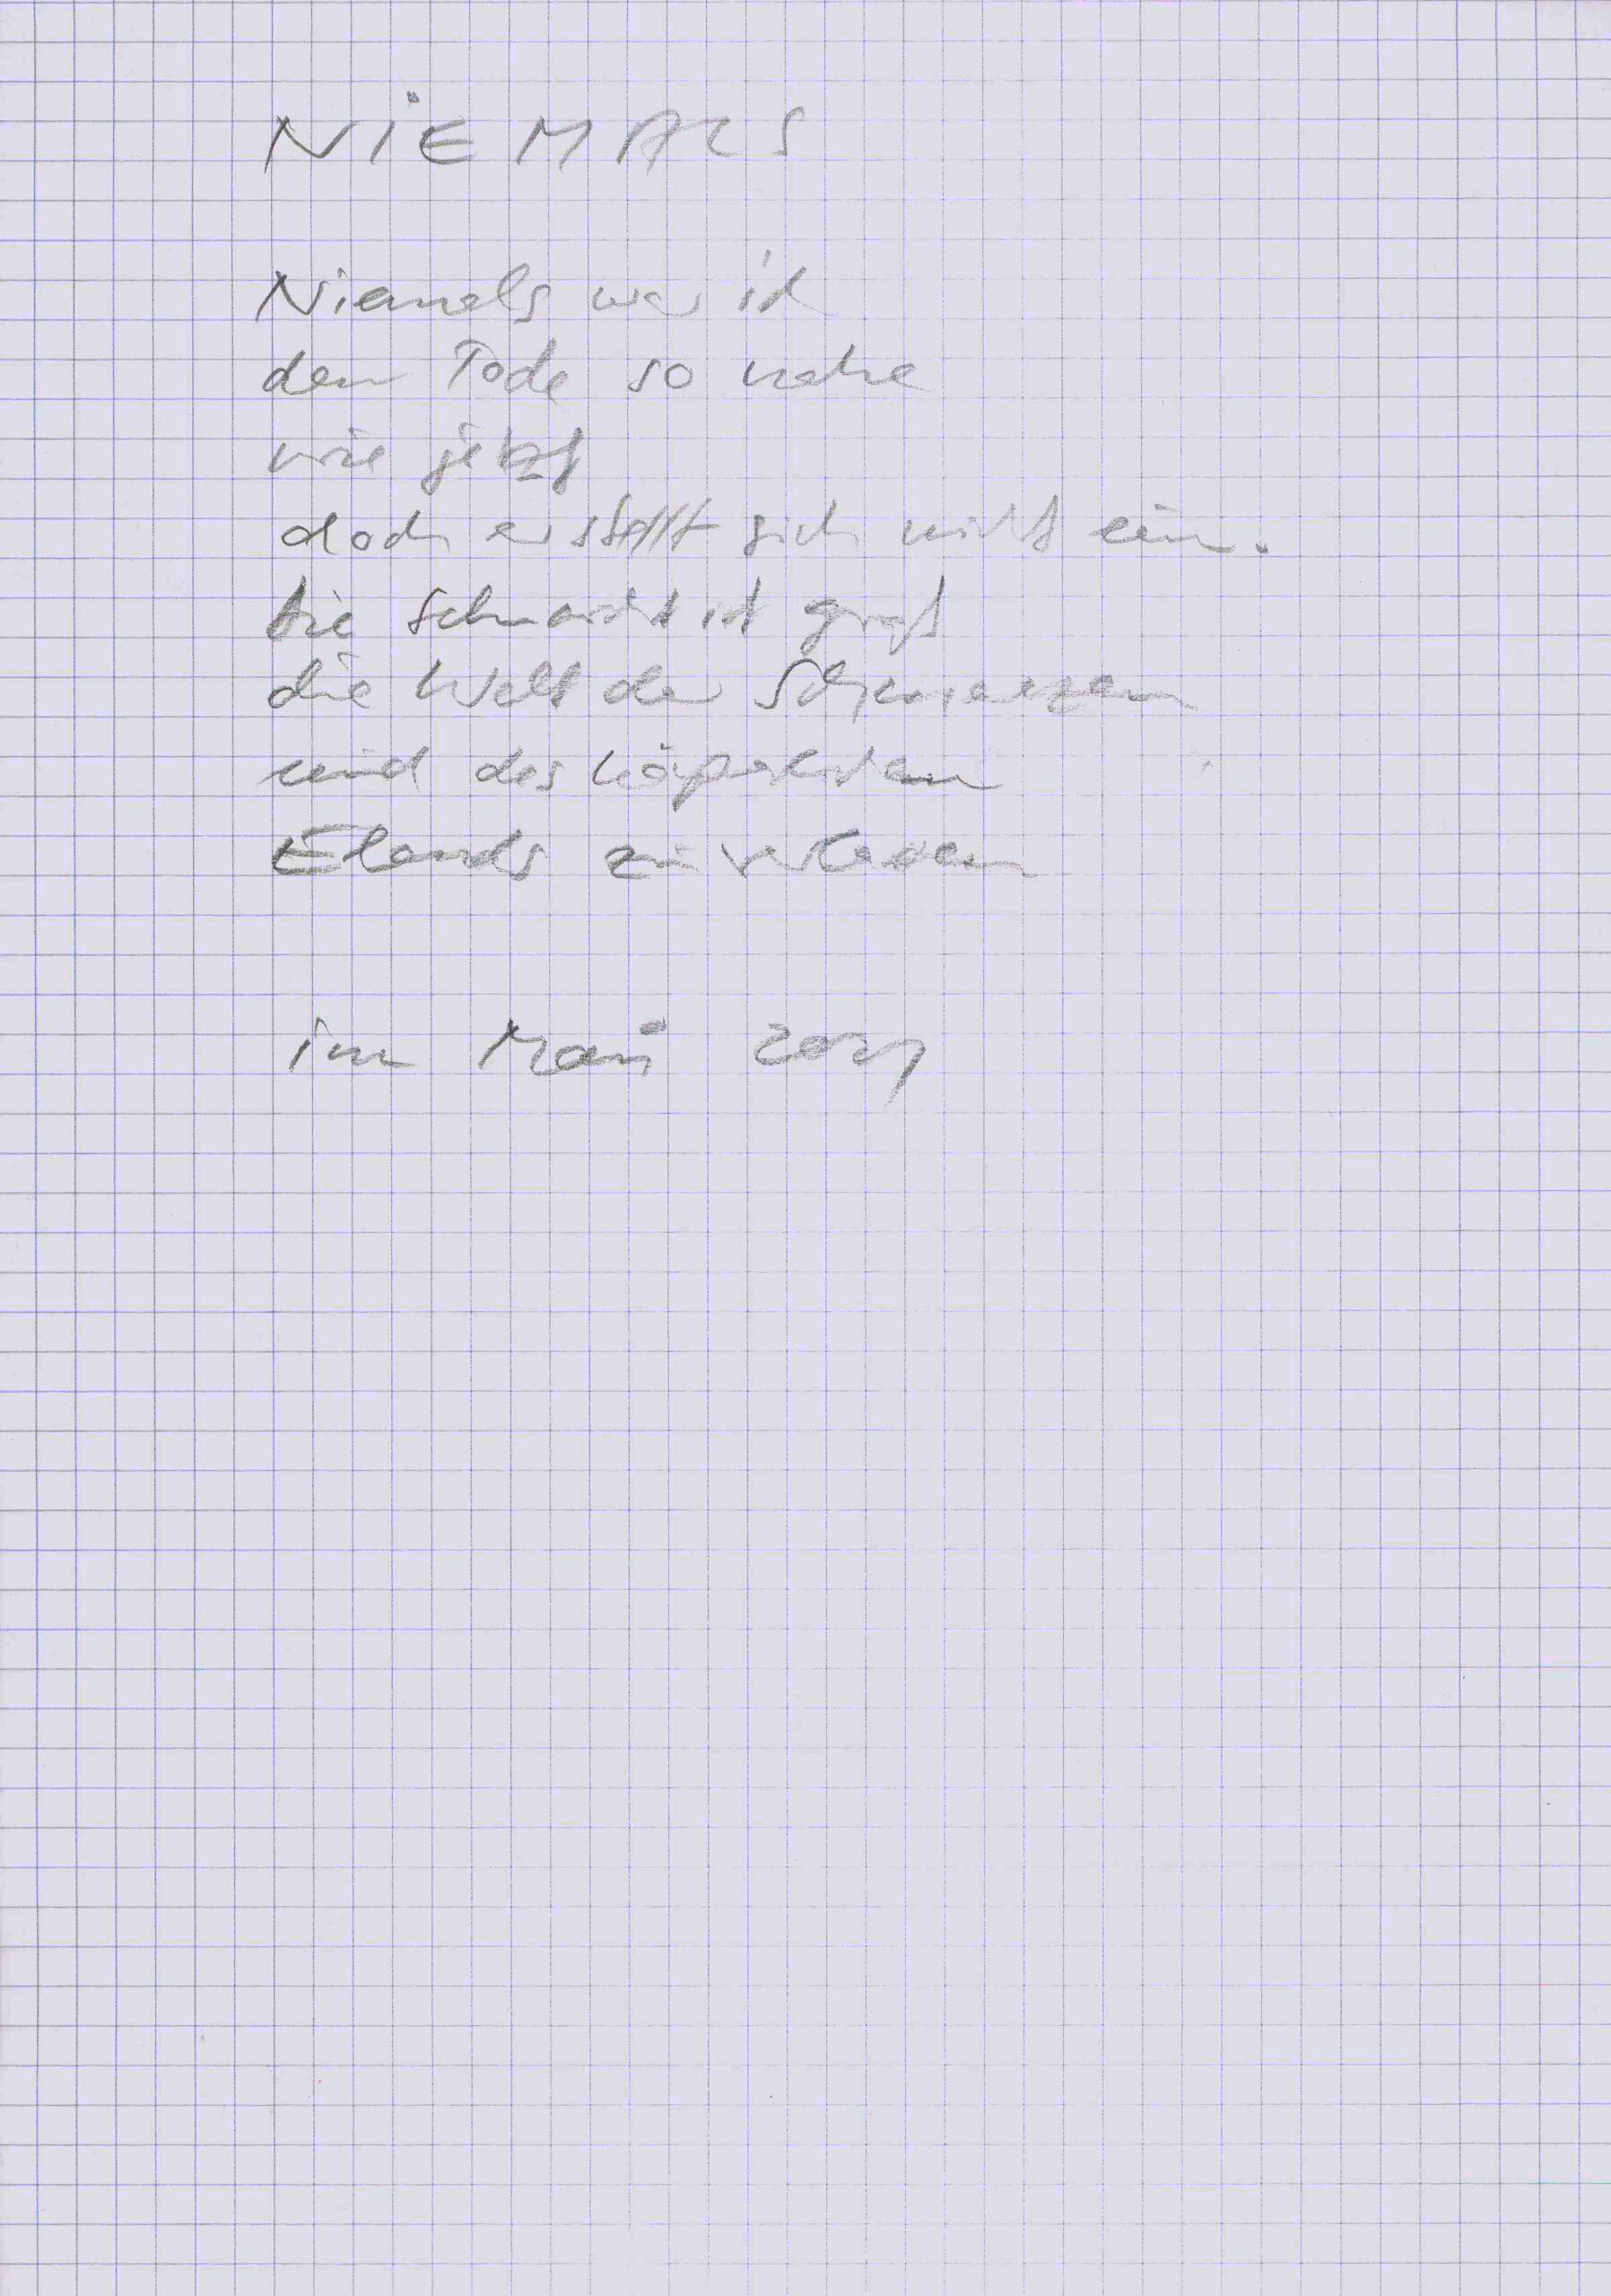 NiEMALS
Niemals war ich
dem Tode so nahe
wie jetzt
doch er stellt sich nicht ein.
Die Sehnsucht ist groß
die Welt der Schmerzen
und des körperlichen
Elends zu verlassen
im Mai 2021